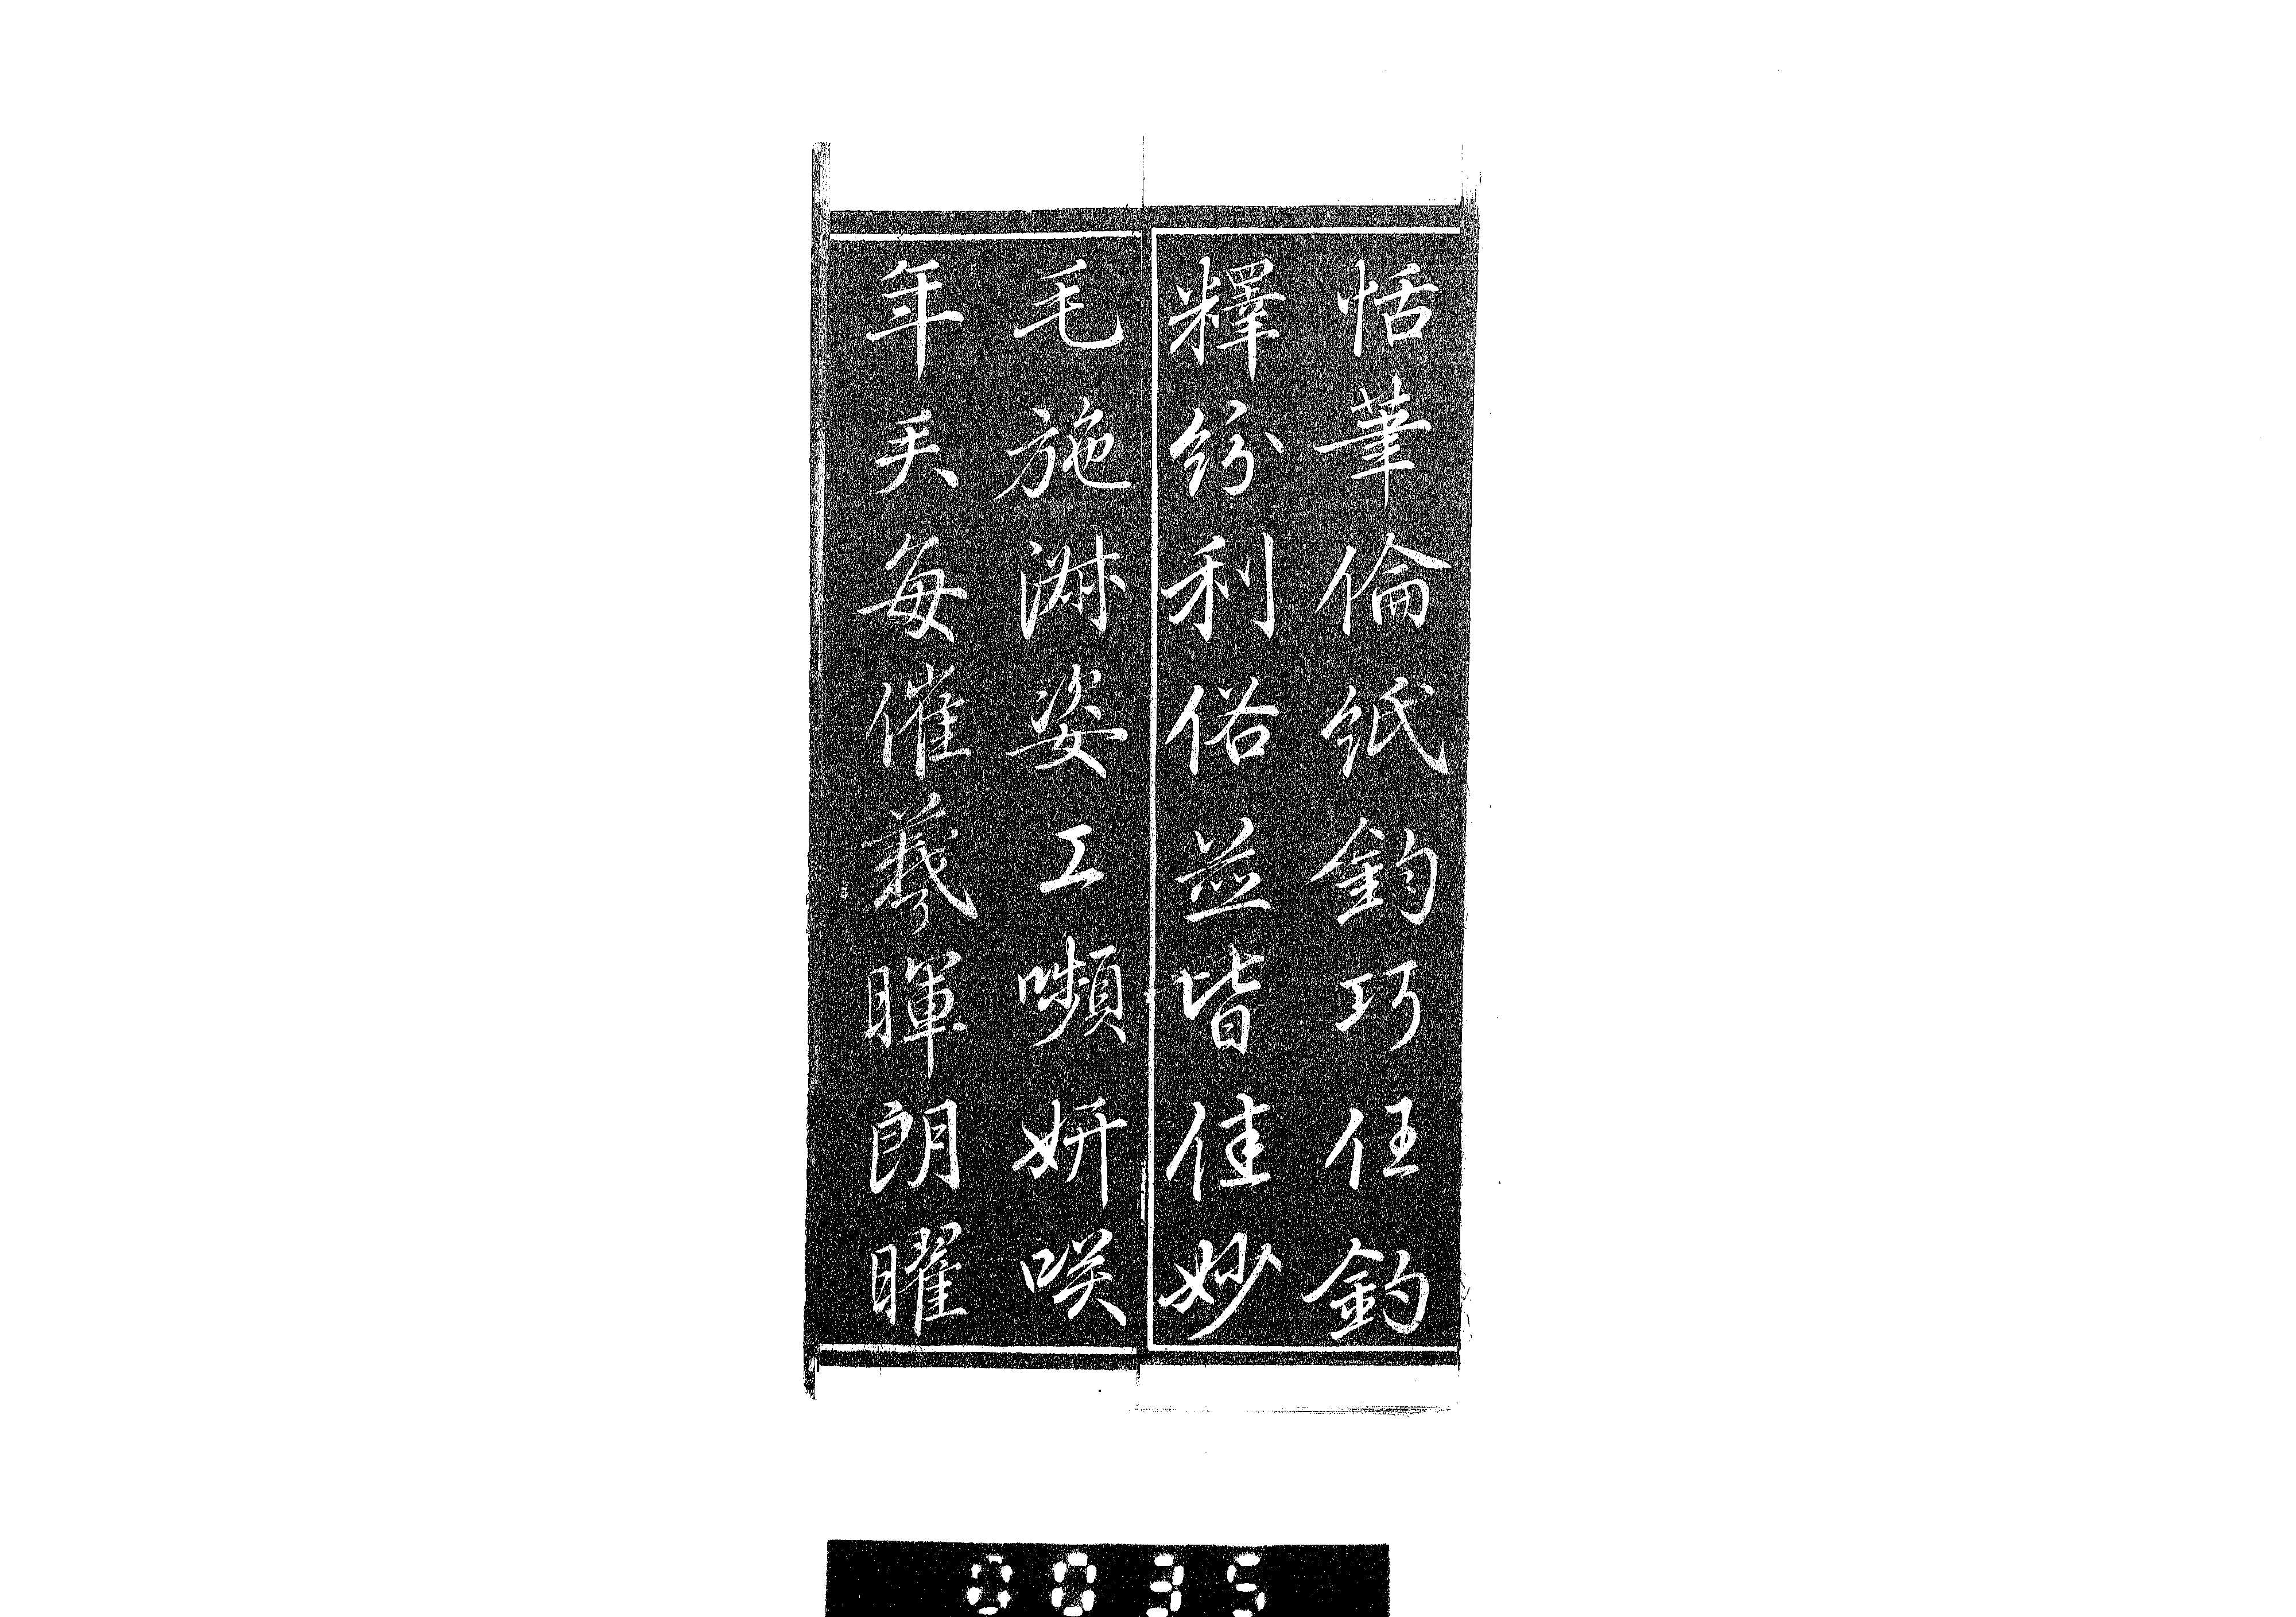 恬筆倫紙鈞巧任釣
釋紛利俗並皆佳妙
毛施淑姿工嚬妍咲
年矢每催羲暉朗曜
0035